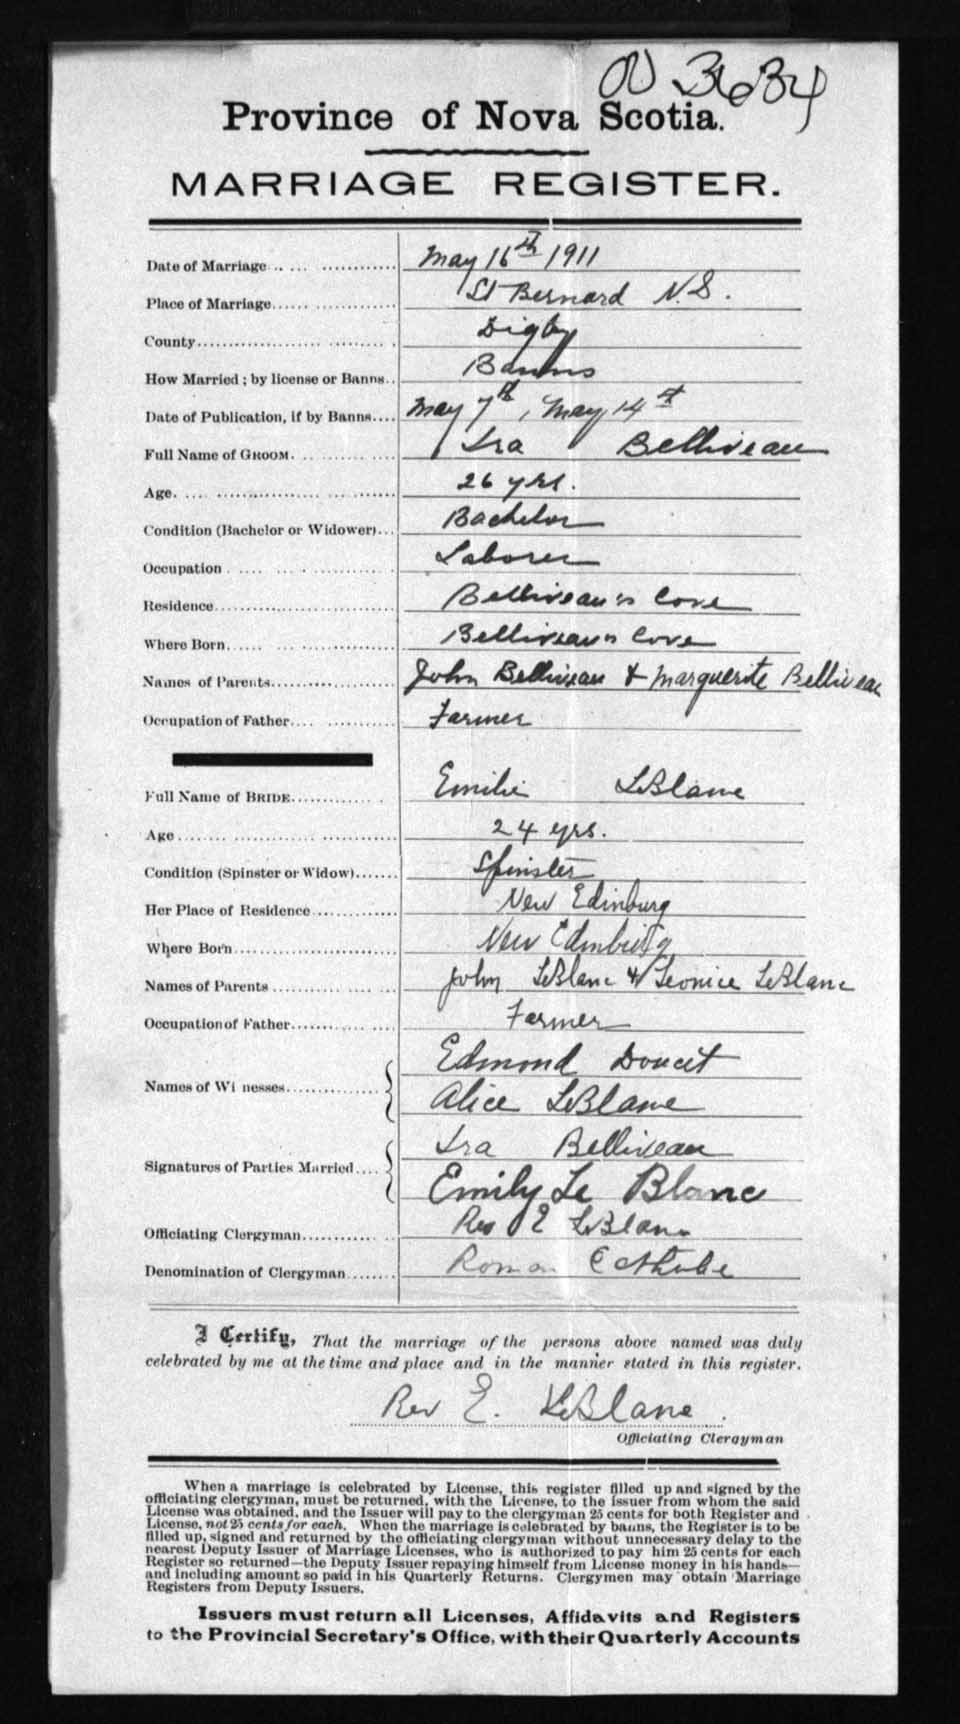 Province of Nova Scotia.
MARRIAGE REGISTER.
Date of Marriage May 16th 1911
Place of Marriage St Bernard N.S.
County Digby
How Married; by license or Banns Banns
Date of Publication, if by Banns May 7th, May 14th
Full Name of GROOM. Ira Belliveau
Age. 26 yrs.
Condition (Bachelor or Widower) Bachelor
Occupation Laborer
Residence Belliveau's Cove
Where Born Belliveau's Cove
Names of Parents John Belliveau & Marguerite Belliveau
Occupation of Father Farmer
Full Name of BRIDE Emilie LeBlanc
Age 24 yrs.
Condition (Spinster or Widow) Spinster
Her Place of Residence New Edinburg
Where Born New Edinburg
Names of Parents John LeBlanc & Leonice LeBlanc
Occupation of Father Farmer
Names of Wi nesses Edmond Doucet
Alice LeBlanc
Signatures of Parties Married Ira Belliveau
Emily Le Blanc
Officiating Clergyman Rev E LeBlanc
Denomination of Clergyman Roman Catholic
I Certify, That the marriage of the persons above named was duly
celebrated by me at the time and place and in the manner stated in this register.
Rev E. LeBlanc.
Officiating Clergyman
When a marriage is celebrated by License, this register filled up and signed by the
officiating clergyman, must be returned, with the License, to the issuer from whom the said
License was obtained, and the Issuer will pay to the clergyman 25 cents for both Register and
License, not 25 cents for each. When the marriage is celebrated by banns, the Register is to be
filled up, signed and returned by the officiating clergyman without unnecessary delay to the
nearest Deputy Issuer of Marriage Licenses, who is authorized to pay him 25 cents for each
Register so returned—the Deputy Issuer repaying himself from License money in his hands—
and including amount so paid in his Quarterly Returns. Clergymen may obtain Marriage
Registers from Deputy Issuers.
Issuers must return all Licenses, Affidavits and Registers
to the Provincial Secretary's Office, with their Quarterly Accounts